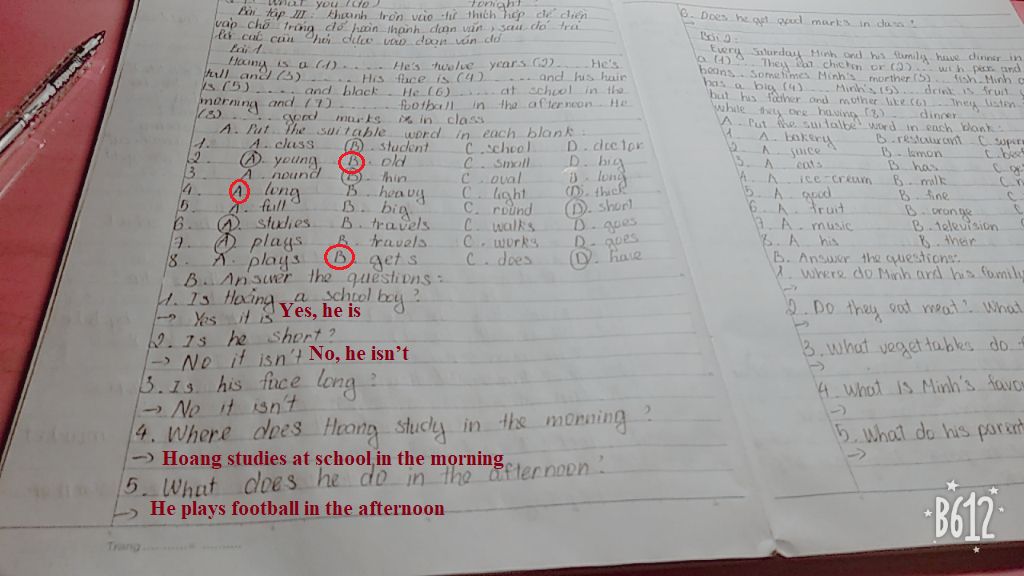 What you (do) tonight?
Bài tập III: Khoanh tròn vào từ thích hợp để điền
vào chỗ trống để hoàn thành đoạn văn, sau đó trả
lời các câu hỏi dựa vào đoạn văn đó
Bài 1
Hoang is a (1)..... He's twelve years (2).... He's
tall and (3)..... His face is (4)..... and his hair
is (5)..... and black. He (6)..... at school in the
morning and (7)..... football in the afternoon. He
(8)..... good marks in class
A. Put the suitable word in each blank:
1. A. class B. student C. school D. doctor
2. A. young B. old C. small D. big
3. A. round B. thin C. oval D. long
4. A. long B. heavy C. light D. thick
5. A. full B. big C. round D. short
6. A. studies B. travels C. walks D. goes
7. A. plays B. travels C. works D. goes
8. A. plays B. gets C. does D. have
B. Answer the questions:
1. Is Hoang a schoolboy?
→ Yes it is Yes, he is
2. Is he short?
→ No it isn't No, he isn't
3. Is his face long?
→ No it isn't
4. Where does Hoang study in the morning?
→ Hoang studies at school in the morning
5. What does he do in the afternoon?
→ He plays football in the afternoon
Trang
6. Does he get good marks in class?
Bài 2:
Every Saturday Minh and his family have dinner in
a (1).... They eat chicken or (2).... with peas and
beans. Sometimes Minh's morther (3).... fish. Minh
has a big (4).... Minh's (5).... drink is fruit
but his father and mother like (6).... They listen
while they are having (8).... dinner
A. Put the suitalbe word in each blank:
1. A. bakery B. restaurant C. super
2. A. juice B. lemon C. beef
3. A. eats B. has C.
4. A. ice-cream B. milk C.
5. A. good B. fine C.
6. A. fruit B. orange C.
7. A. music B. television
8. A. his B. their
B. Answer the questions:
1. Where do Minh and his family
2. Do they eat meat? What
→
3. What vegettables do
→
4. What is Minh's favou
→
5. What do his parent
→
B612